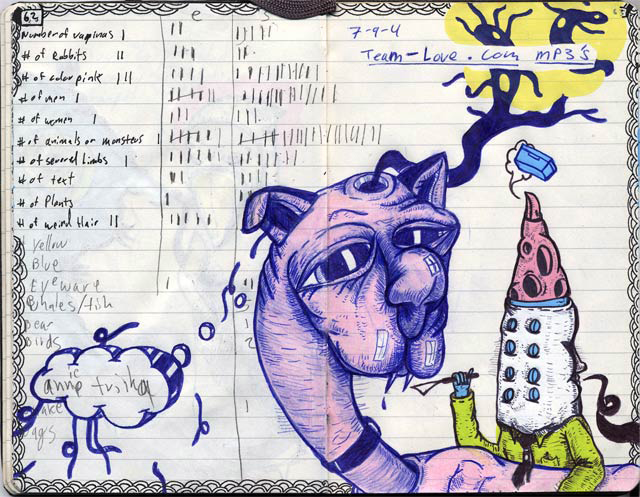 62
e s
Number of vaginas |
# of Rabbits ||
# of color pink |||
# of men |
# of women |
# of animals or monsters |
# of severel limbs |
# of text
# of Plants
# of weird Hair ||
Yellow
Blue
Eyeware
Whales/fish
bear
Birds
7-9-4
Team-Love.com mp3's